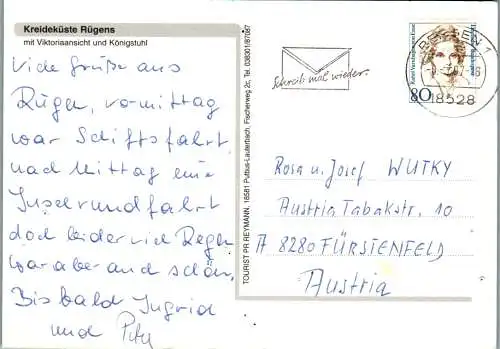 Kreideküste Rügens
mit Viktoriaansicht und Königstuhl
Viele Grüße aus
Rügen, vormittag
war Schiffsfahrt,
nach Mittag eine
Inselrundfahrt
doch leider viel Regen
war aber auch schön.
Bis bald Ingrid
und
TOURIST PR REYMANN, 18581 Putbus-Lauterbach, Fischerweg 2c, Tel. 038301/87087
Schreib mal wieder.
80
BERGEN 1
18528
Rosa u. Josef WUTKY
Austria Tabakstr. 10
A 8280 FÜRSTENFELD
Austria